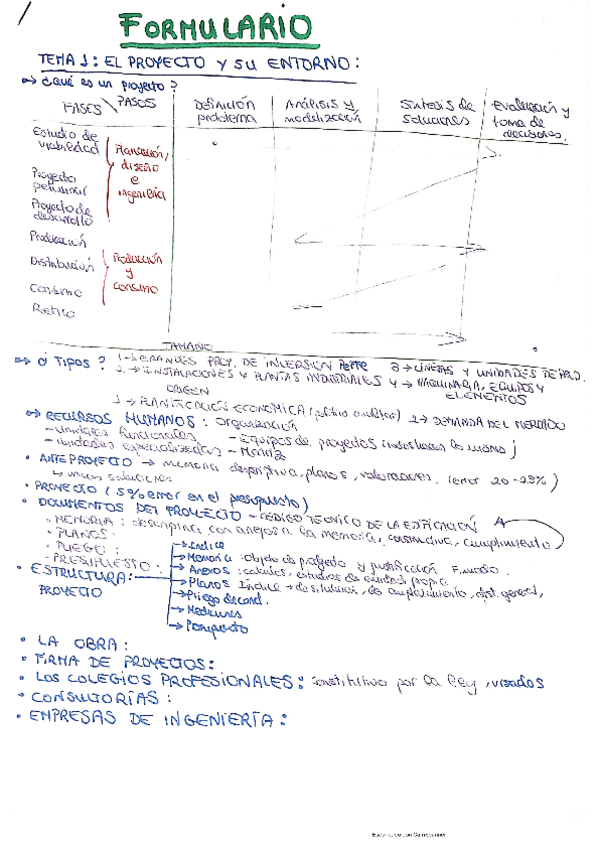 FORMULARIO
TEMA 1: EL PROYECTO Y SU ENTORNO:
¿Qué es un proyecto?
FASES \ PASOS
Definición problema
Análisis y modelización
Síntesis de soluciones
Evaluación y toma de decisiones.
Estudio de viabilidad
Proyecto preliminar
Proyecto de desarrollo
Planeación, diseño e ingeniería
Producción
Distribución
Consumo
Retiro
Producción y consumo
TAMAÑO
¿Tipos? 1→GRANDES PROY. DE INVERSION 3→LÍNEAS Y UNIDADES DE PROD.
2→INSTALACIONES Y PLANTAS INDUSTRIALES 4→MAQUINARIA, EQUIPOS Y ELEMENTOS
ORIGEN
1→PLANIFICACIÓN ECONOMICA 2→DEMANDA DEL MERCADO
RECURSOS HUMANOS: Organización
- unidades funcionales - Equipos de proyectos
- unidades especializadas - Matriz
• ANTEPROYECTO → memoria descriptiva, planos, valoraciones. (error 20-25%)
↳ varias soluciones
• PROYECTO (5% error en el presupuesto)
• DOCUMENTOS DEL PROYECTO - CÓDIGO TECNICO DE LA EDIFICACIÓN
• MEMORIA: descriptiva con anejos a la memoria, constructiva, cumplimiento
• PLANOS:
• PLIEGO:
• PRESUPUESTO:
• ESTRUCTURA: PROYECTO
→Indice
→Memoria: Objeto de proyecto y justificación
→Anexos: calculos, estudios de entidad propia
→Planos Indice → de situación, de emplazamiento, dist. general,
→Pliego de cond.
→Mediciones
→Presupuesto
• LA OBRA:
• FIRMA DE PROYECTOS:
• LOS COLEGIOS PROFESIONALES: constitutivo por la ley, visados
• CONSULTORÍAS:
• EMPRESAS DE INGENIERÍA:
Escaneado con CamScanner